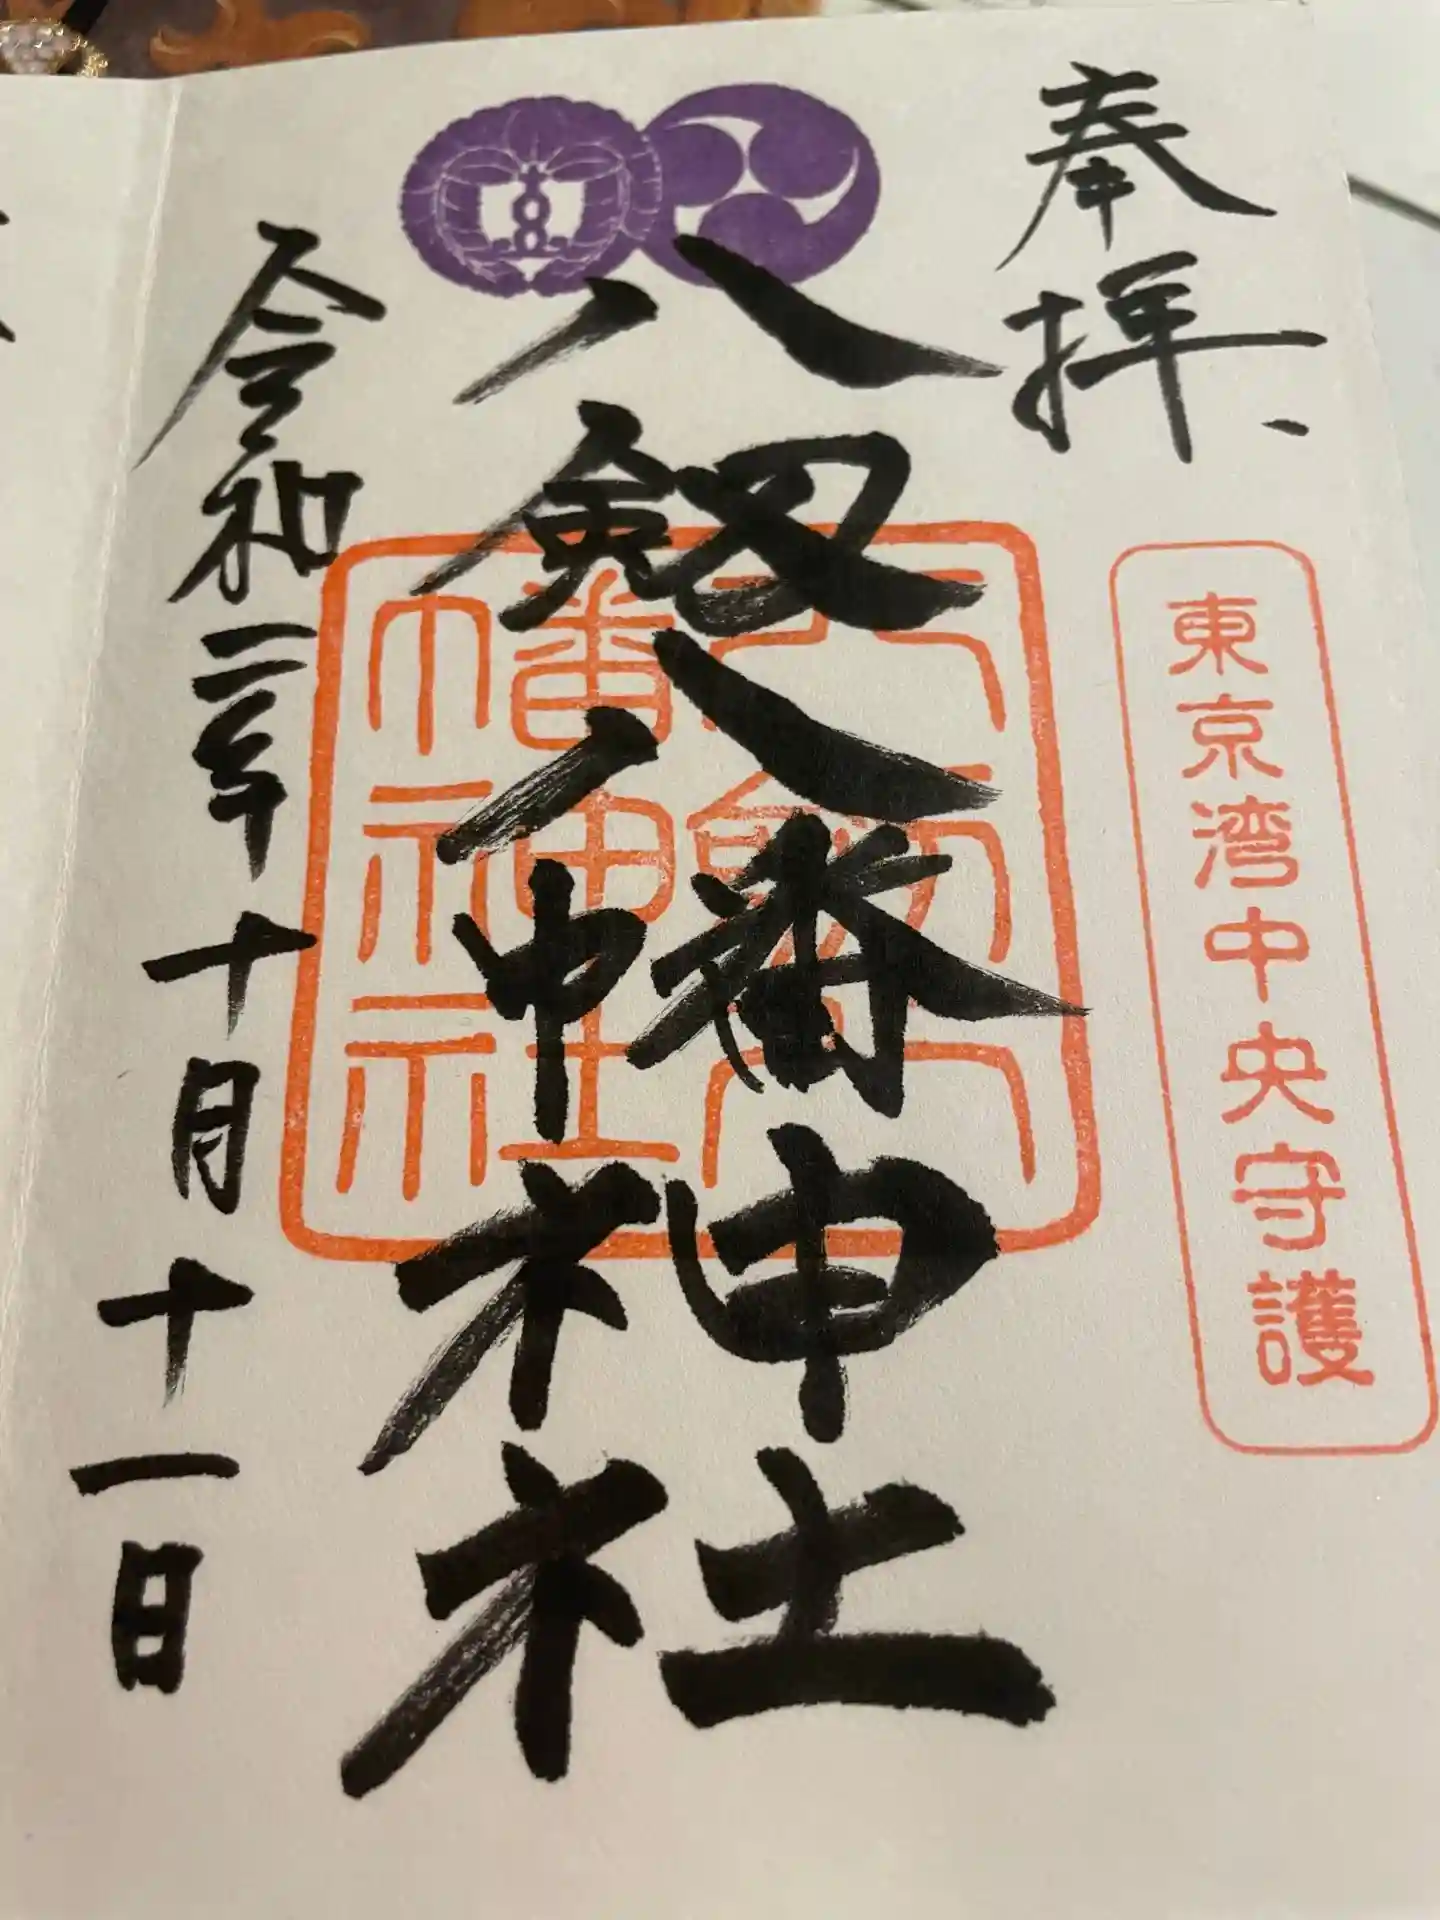 奉拝、
東京湾中央守護
八剱八幡神社
八剱八
幡神社
令和二年十月十一日